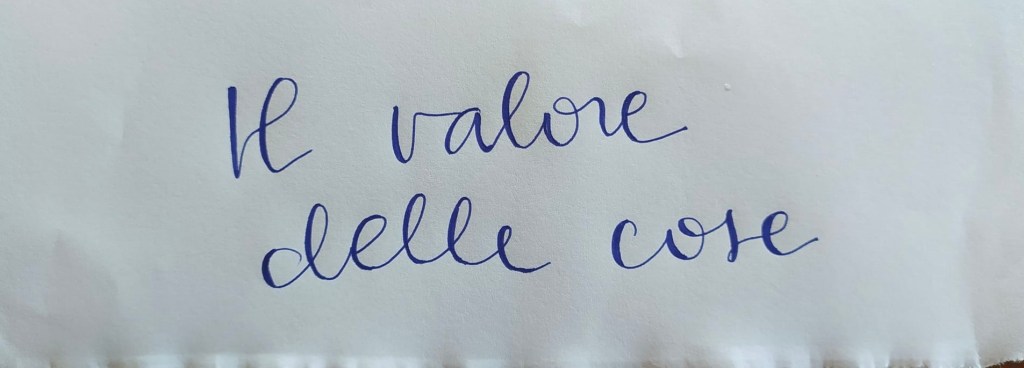 Il valore
delle cose